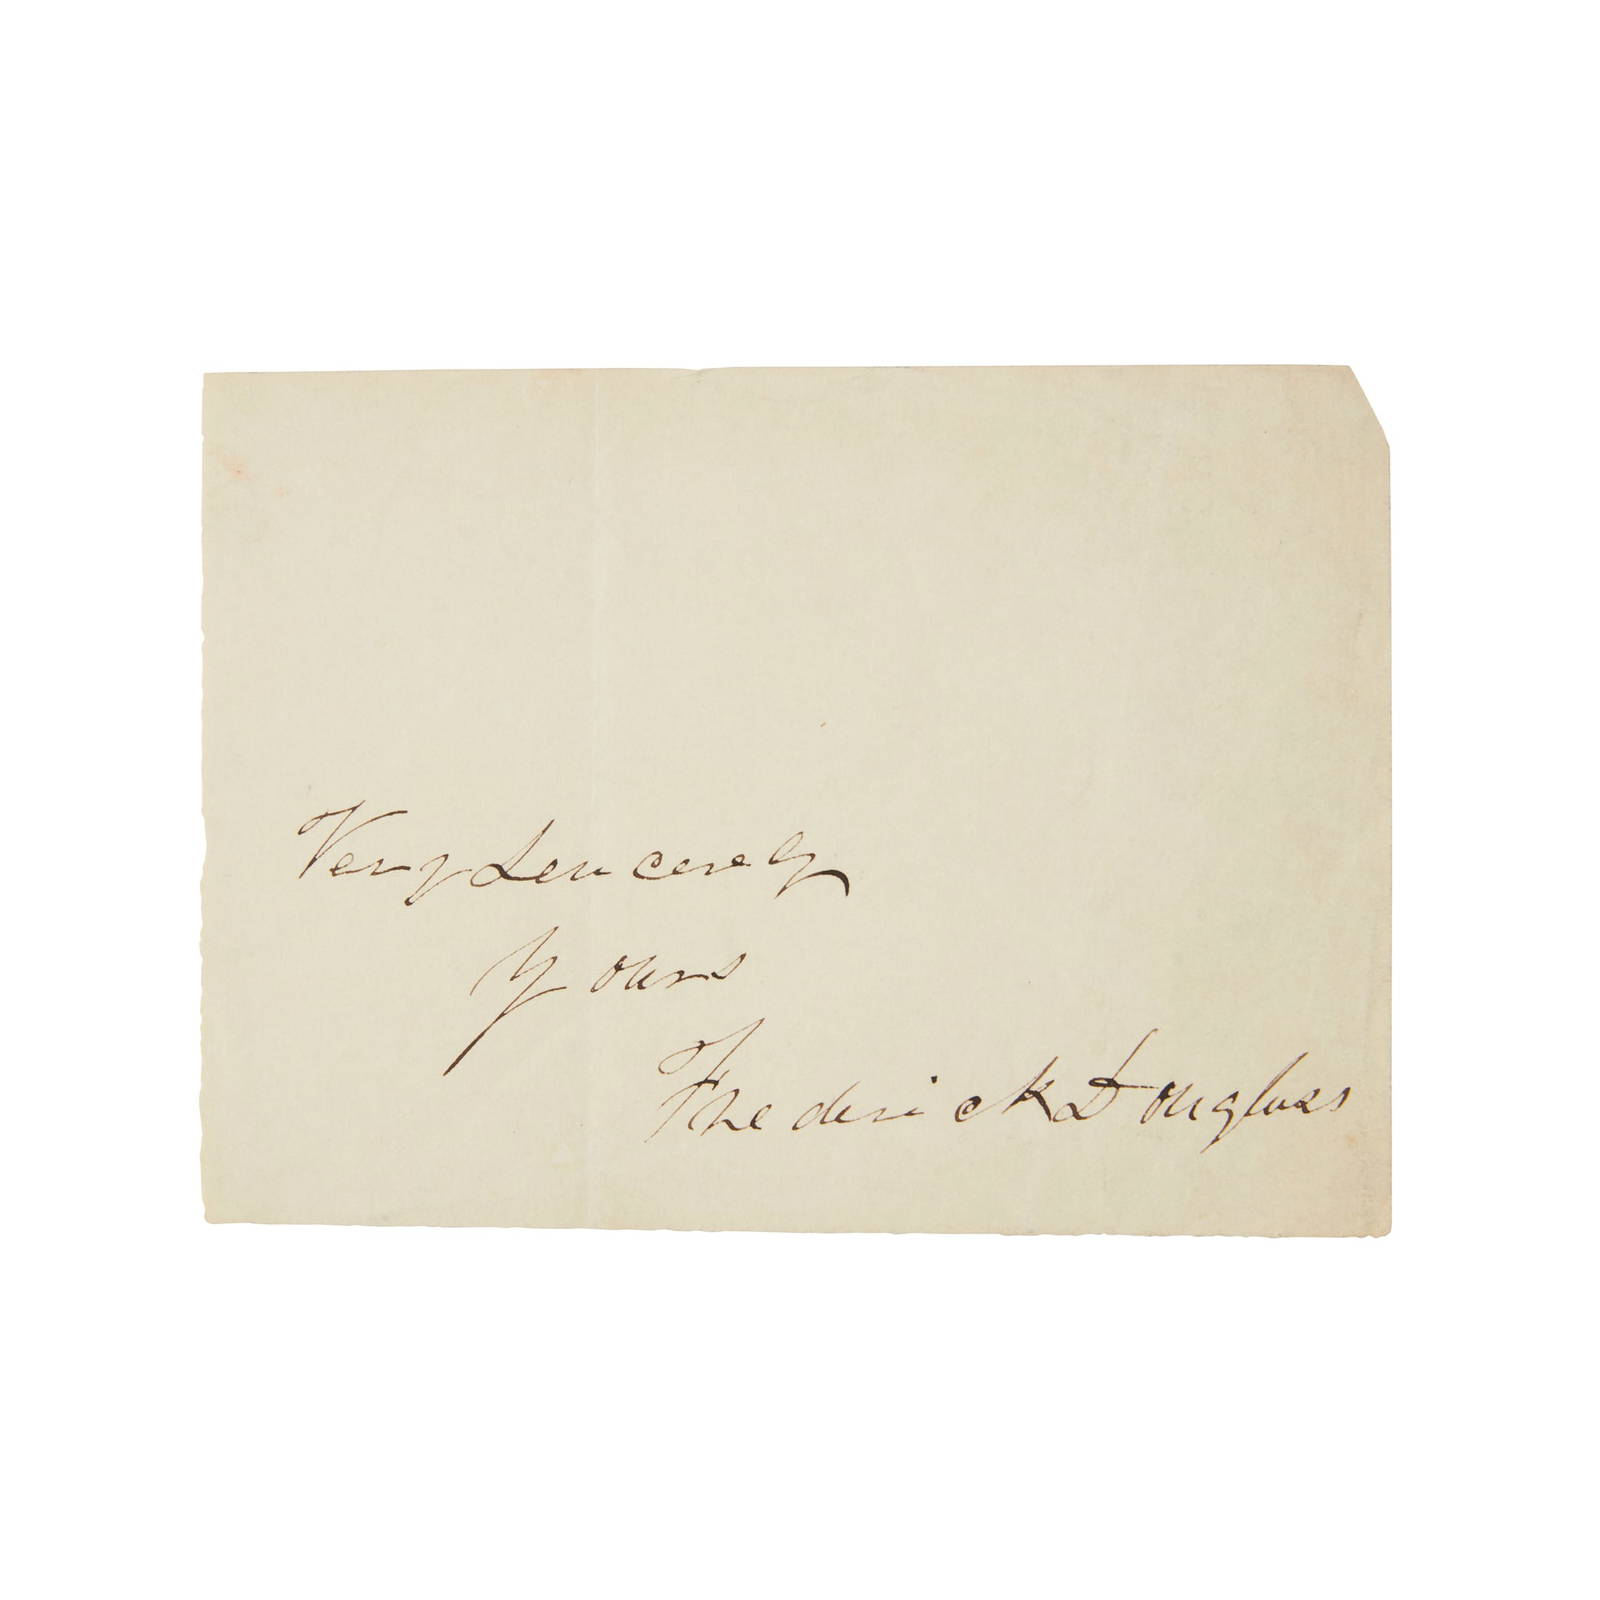 Very Sincerely
Yours
Frederick Douglass